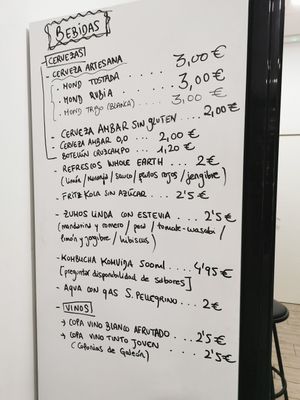 BEBIDAS
CERVEZAS
- CERVEZA ARTESANA
- MOND TOSTADA .... 3,00€
- MOND RUBIA .... 3,00€
- MOND TRIGO (BLANCA) .... 3,00€
- CERVEZA AMBAR SIN GLUTEN . 2,00€
- CERVEZA AMBAR 0,0 ... 2,00€
- BOTELLÍN CRUZCAMPO .... 1,20€
- REFRESCOS WHOLE EARTH .. 2€
(limón / naranja / sauco / frutos rojos / jengibre)
- FRITZ KOLA SIN AZÚCAR ... 2'5€
- ZUMOS LINDA CON ESTEVIA ... 2'5€
(mandarina y romero / pera / tomate-wasabi /
limón y jengibre / hibiscus)
- KOMBUCHA KOMVIDA 500ml .... 4'95€
[preguntar disponibilidad de sabores]
- AGUA CON GAS S. PELLEGRINO ... 2€
- VINOS
→ COPA VINO BLANCO AFRUTADO .. 2'5€
→ COPA VINO TINTO JOVEN .. 2'5€
(Colonias de Galeón) 2'5€